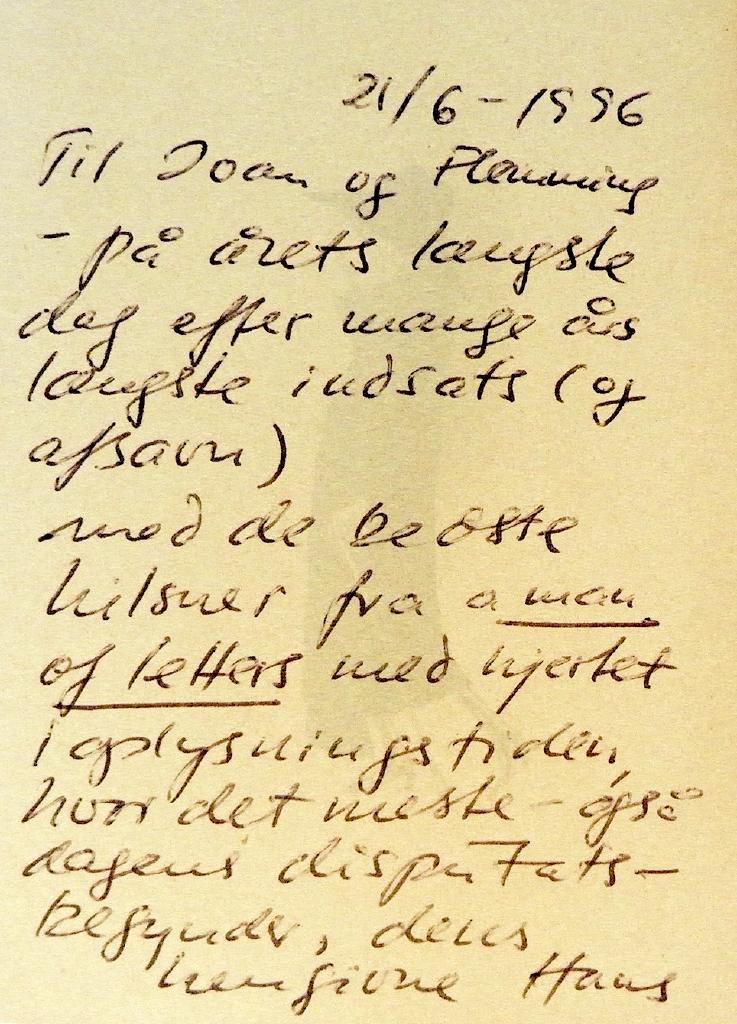 21/6-1996
Til Joan og Flemming
- på årets længste
dag efter mange års
længste indsats (og
afsavn)
med de bedste
hilsner fra a man
of letters med hjertet
i oplysningstiden,
hvor det meste - også
dagens disputats -
begynder, deres
hengivne Hans